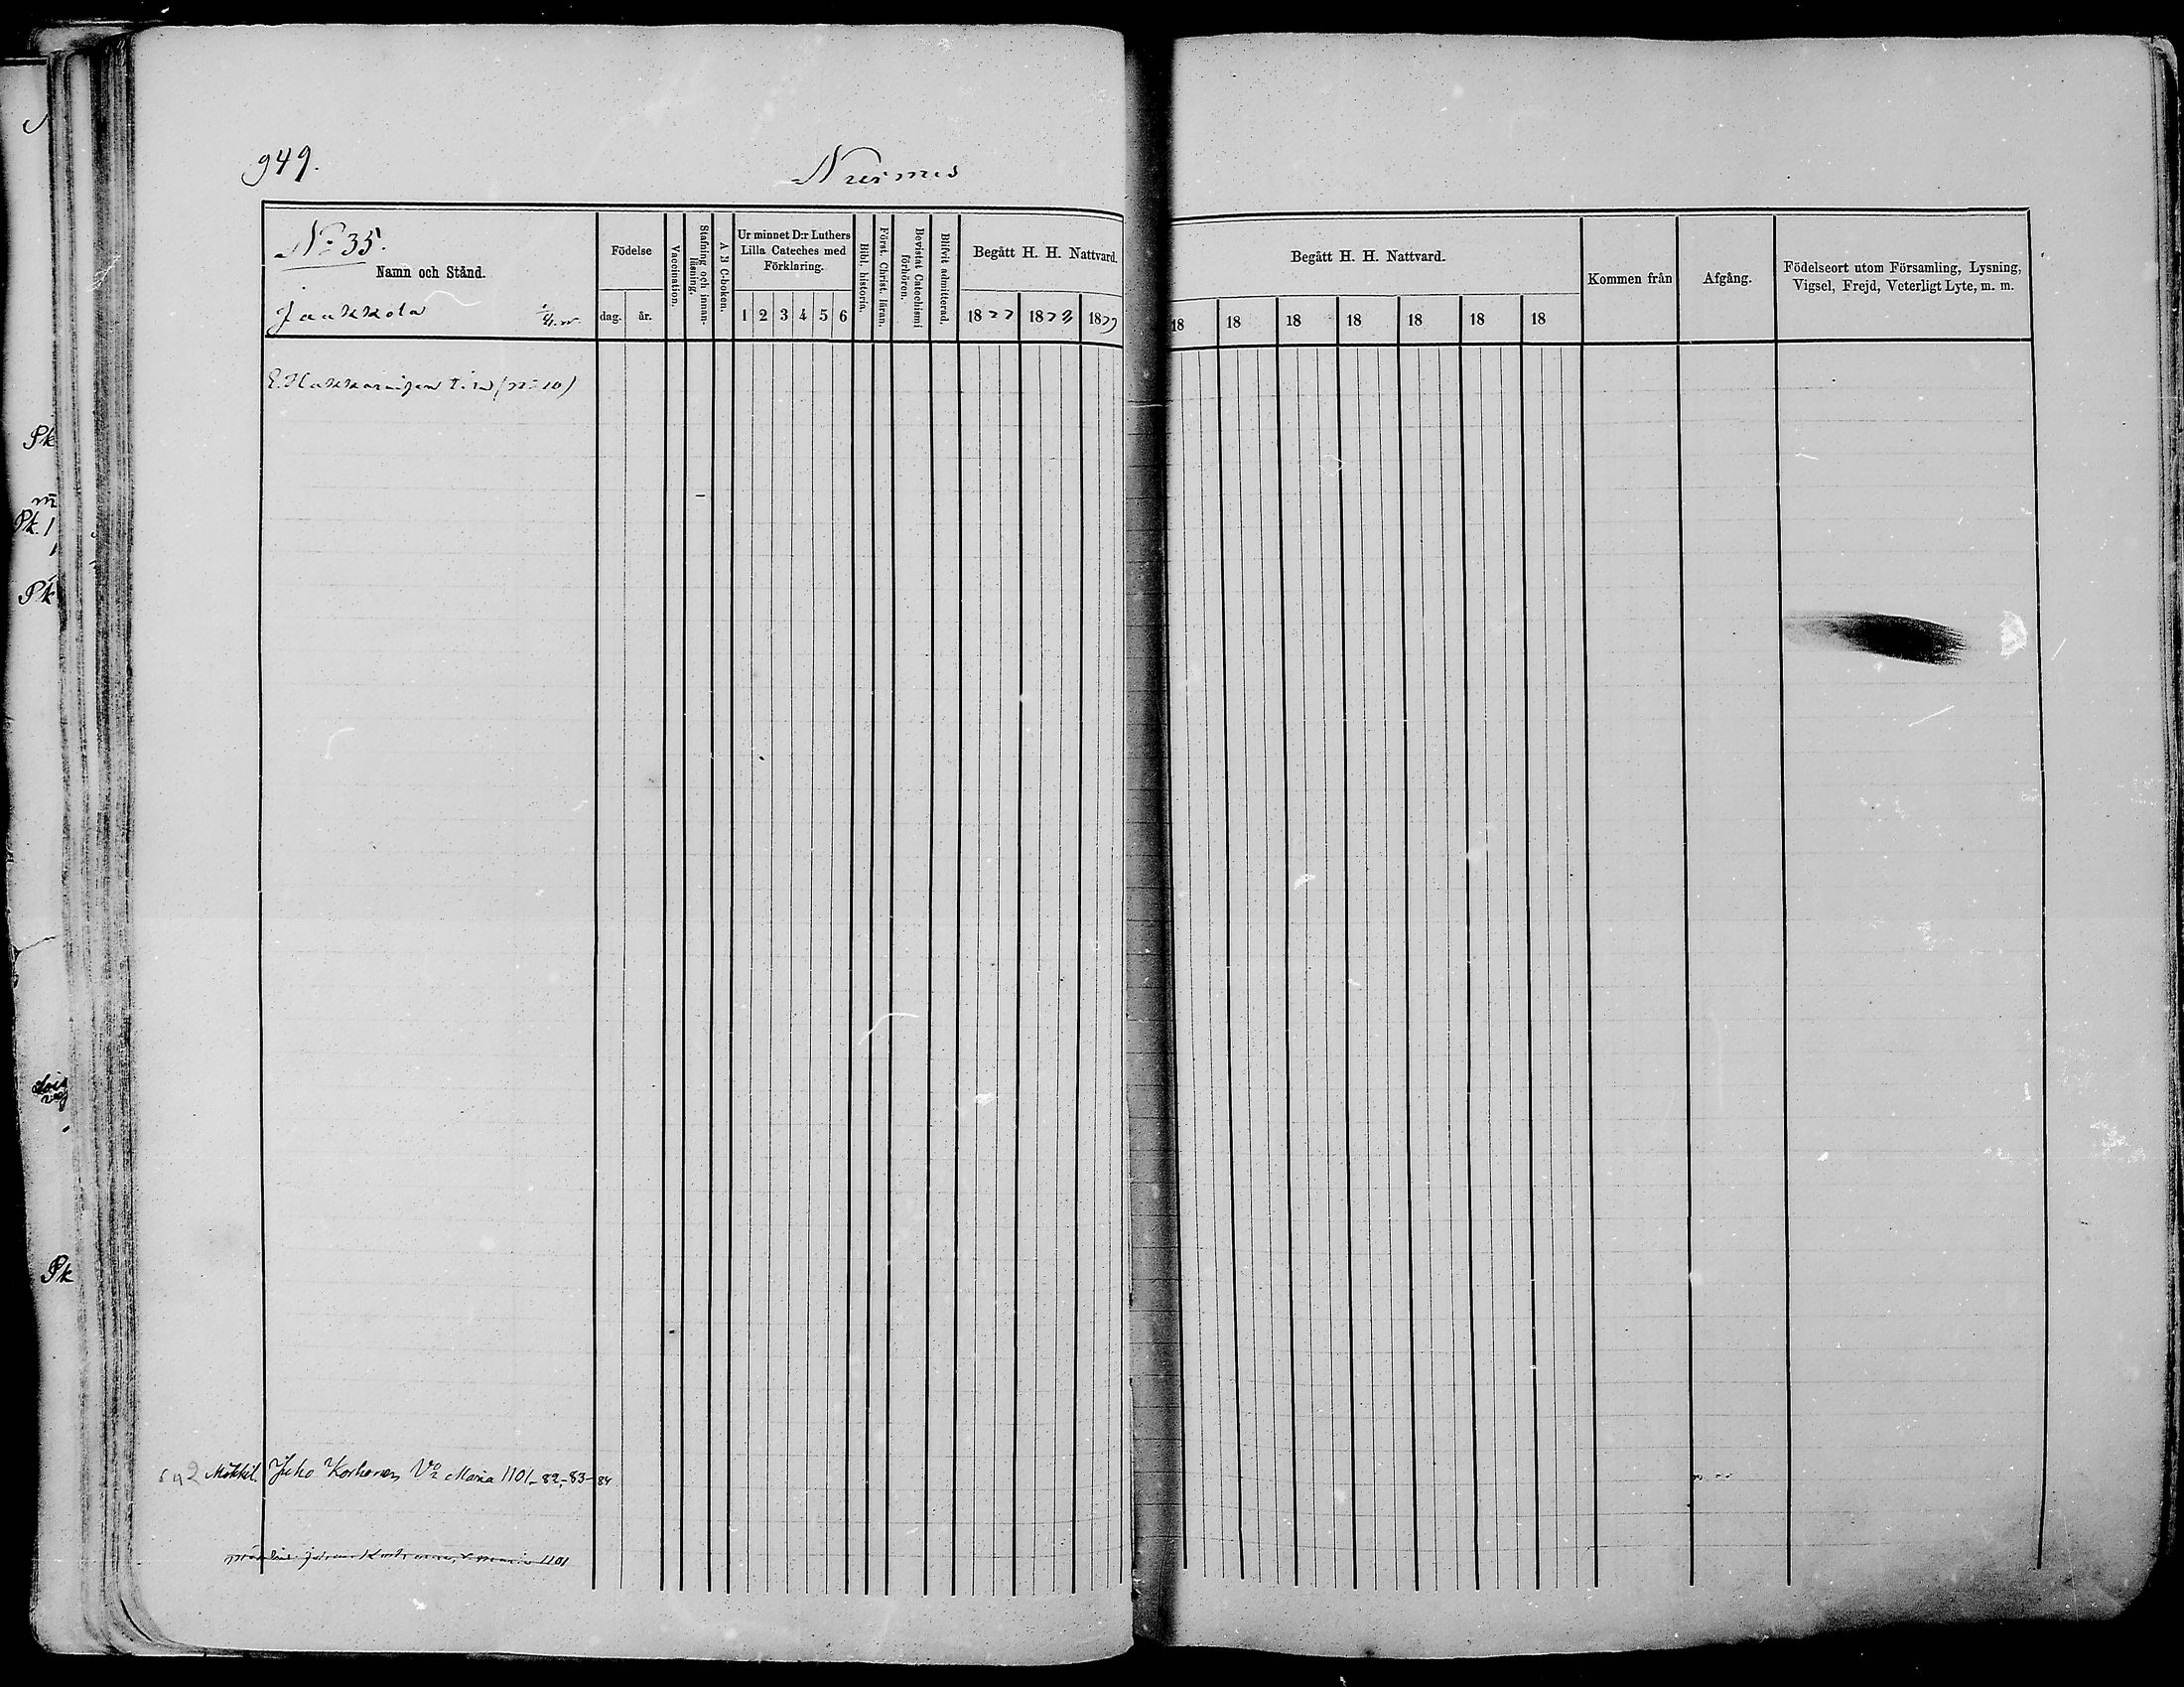 949.
Nurmes
No 35.
Namn och Stånd.
Jaakkola
Födelse
dag.
år.
Vaccination.
Stafning och innan-
läsning.
A B C-boken.
Ur minnet D:r Luthers
Lilla Cateches med
Förklaring.
1 2 3 4 5 6
Bibl. historia.
Förstår Christ. läran.
Bevistat Catechismi
förhören.
Blifvit admitterad.
Begått H. H. Nattvard.
1877 1878 1879
Begått H. H. Nattvard.
18 18 18 18 18 18 18
Kommen från
Afgång.
Födelseort utom Församling, Lysning,
Vigsel, Frejd, Veterligt Lyte, m. m.
E. Hakkarainen (No 10)
Mökkil. Juho Korhonen Maria 1101-82-83-84
Johan Korhonen, Maria 1101
Pk
Pk. 1
Pk
Pk